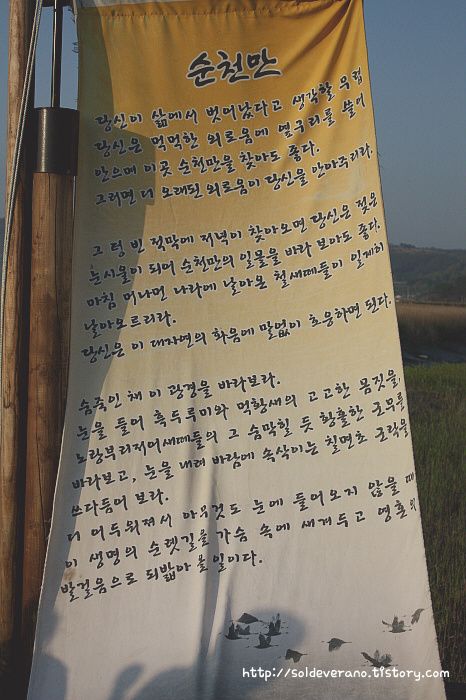 순천만
당신이 삶에서 벗어났다고 생각할 무렵
당신은 먹먹한 외로움에 옆구리를 쓸어
안으며 이곳 순천만을 찾아도 좋다.
그러면 더 오래된 외로움이 당신을 안아주리라.
그 텅 빈 적막에 저녁이 찾아오면 당신은 젖은
눈시울이 되어 순천만의 일몰을 바라 보아도 좋다.
마침 머나먼 나라에 날아온 철새떼들이 일제히
날아오르리라.
당신은 이 대자연의 화음에 말없이 호응하면 된다.
숨죽인 채 이 광경을 바라보라.
눈을 들어 흑두루미와 먹황새의 고고한 몸짓을,
노랑부리저어새떼들의 그 숨막힐 듯 황홀한 군무를
바라보고, 눈을 내려 바람에 속삭이는 칠면초 군락을
쓰다듬어 보라.
더 어두워져서 아무것도 눈에 들어오지 않을 때
이 생명의 순렛길을 가슴 속에 새겨두고 영혼의
발걸음으로 되밟아 볼 일이다.
http://soldeverano.tistory.com